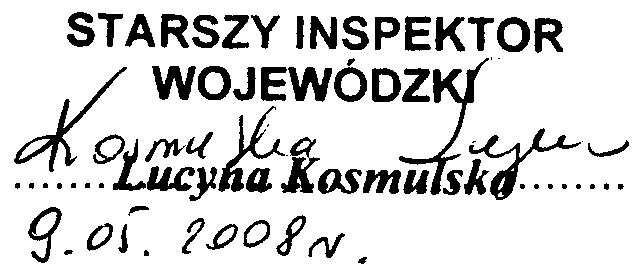 STARSZY INSPEKTOR
WOJEWÓDZKI
Kosmulska Lucyna
Lucyna Kosmulska
9.05.2008r.